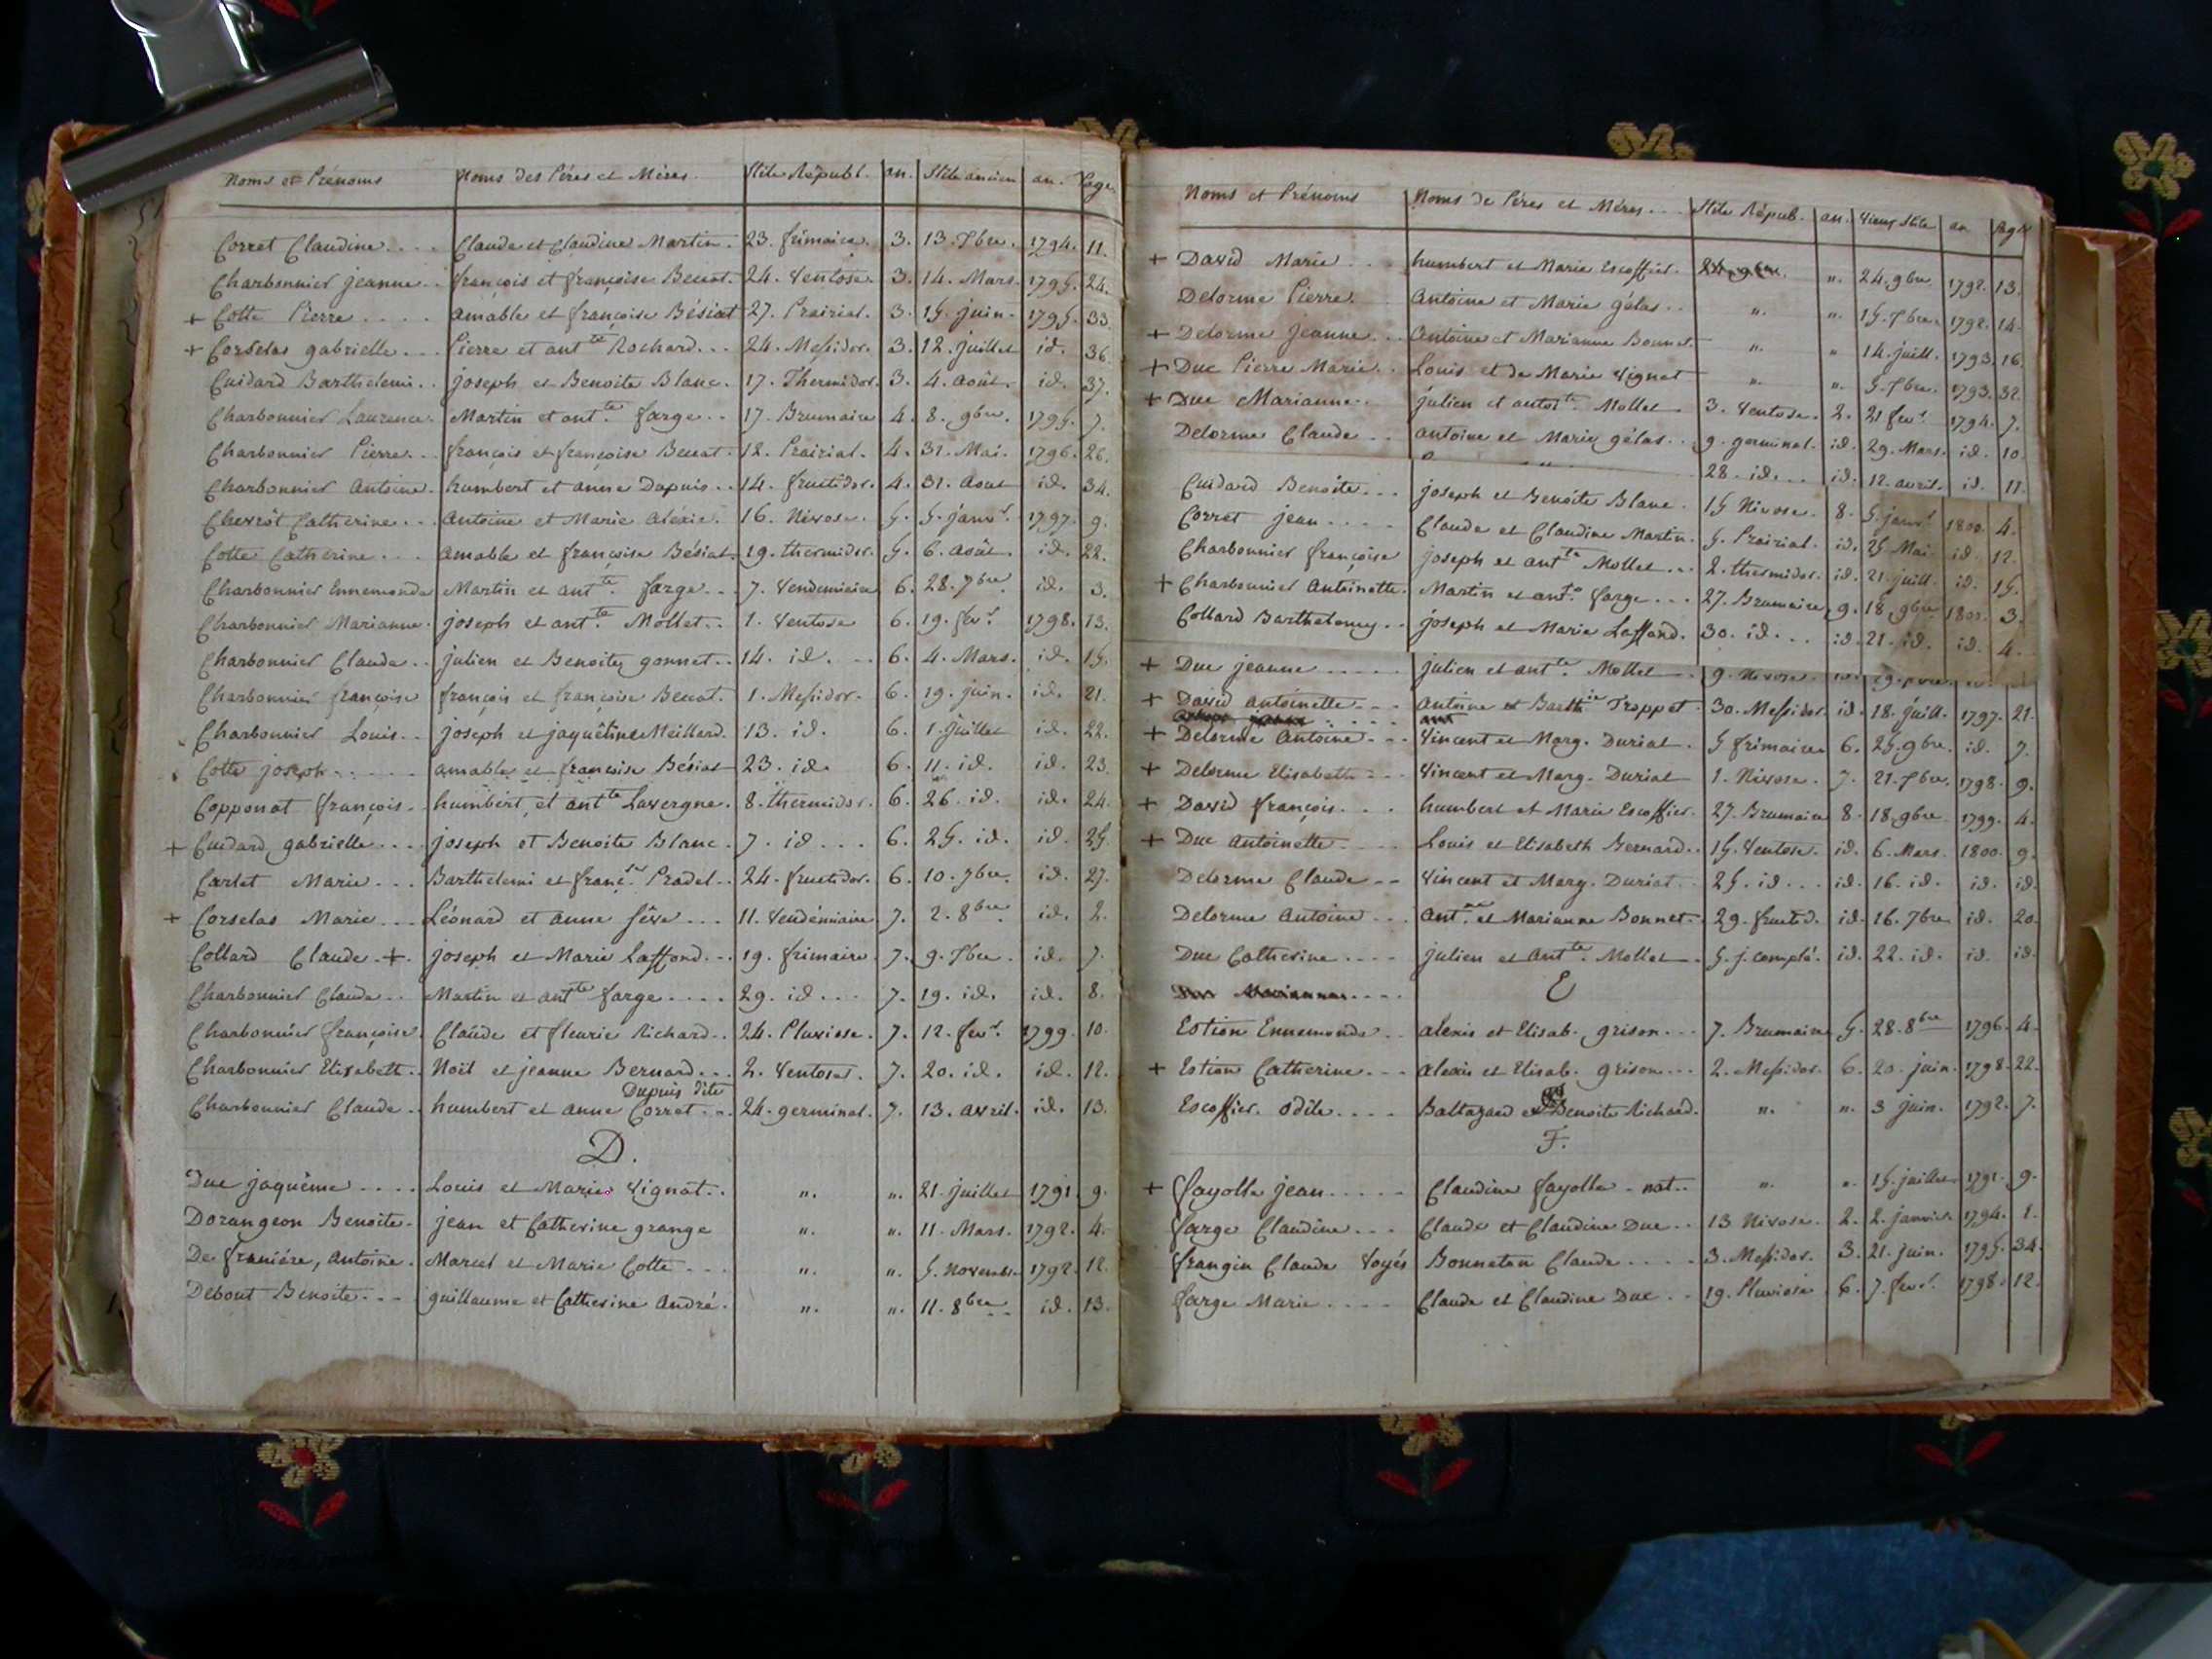 Noms et Prénoms Noms des Péres et Méres. Stile Républ. an. Stile ancien an. Page.
Corret Claudine.... Claude et Claudine Martin. 23. frimaire. 3. 13. Xbre. 1794. 11.
Charbonnier jeanne.. françois et françoise Benat. 24. Ventose. 3. 14. Mars. 1795. 24.
+ Cotte Pierre.... amable et françoise Bésiat 27. Prairial. 3. 15. juin. 1795. 33.
+ Corselas gabrielle... Pierre et antte Rochard... 24. Messidor. 3. 12. juillet id. 36.
Cuidard Barthelemi.. joseph et Benoite Blanc. 17. Thermidor. 3. 4. Août. id. 37.
Charbonnier Laurence. Martin et antte. farge.. 17. Brumaire 4. 8. 9bre. 1795. 7.
Charbonnier Pierre.. françois et françoise Benat. 12. Prairial. 4. 31. Mai. 1796. 26.
Charbonnier Antoine. humbert et anne Dupuis.. 14. fructidor. 4. 31. Aout id. 34.
Chevrôt Catherine... Antoine et Marie Aléxie. 16. Nivose. 5. 5. janvr. 1797. 9.
Cotte Catherine... amable et françoise Bésiat. 19. thermidor. 5. 6. août. id. 22.
Charbonnier Ennemonde Martin et antte. farge... 7. Vendemiaire 6. 28. 7bre id. 3.
Charbonnier Marianne. joseph et antte. Mollet.. 1. Ventose 6. 19. fevr. 1798. 13.
Charbonnier Claude.. julien et Benoite gonnet.. 14. id. .. 6. 4. Mars. id. 15.
Charbonnier françoise françois et françoise Benat. 1. Messidor. 6. 19. juin. id. 21.
Charbonnier Louis.. joseph et jaquêtine Meillard. 13. id. 6. 1. juillet id. 22.
Cotte joseph..... amable et françoise Bésiat 23. id. 6. 11. id. id. 23.
Copponat françois. humbert et antte Lavergne. 8. thermidor. 6. 26. id. id. 24.
+ Cuidard gabrielle.... joseph et Benoite Blanc. 7. id... 6. 25. id. id. 25.
Carlet Marie... Barthelemi et françse Pradel.. 24. fructidor. 6. 10. 7bre. id. 27.
+ Corselas Marie... Léonard et anne séve... 11. Vendémiaire 7. 2. 8bre. id. 2.
Collard Claude.+. joseph et Marie Laffond... 19. frimaire 7. 9. Xbre. id. 7.
Charbonnier Claude.. Martin et antte farge.... 29. id... 7. 19. id. id. 8.
Charbonnier françoise. Claude et fleurie Richard.. 24. Pluviose. 7. 12. fevr. 1799. 10.
Charbonnier Elisabeth. Noël et jeanne Bernard... 2. Ventose. 7. 20. id. id. 12.
Dupuis dite
Charbonnier Claude.. humbert et anne Corret... 24. germinal. 7. 13. avril. id. 13.
D.
Duc jaquême.... Louis et Marie Vignat.. ". ". 21. juillet 1791. 9.
Dorangeon Benoite. jean et Catherine grange ". ". 11. Mars. 1792. 4.
De franiére, antoine. Marcel et Marie Cotte... ". ". 5. Novembr. 1792. 12.
Debout Benoite... guillaume et Catherine André. ". ". 11. 8bre. id. 13.
Noms et Prénoms Noms de Péres et Méres... Stile Répub. an. Vieux Stile an Page
+ David Marie... humbert et Marie Escoffier. ". 24. 9bre 1792. 13.
Delorme Pierre. Antoine et Marie gélas.. ". ". 15. Xbre. 1792. 14.
+ Delorme jeanne.. Antoine et Marianne Bonnet. ". " 14. juill. 1793. 16.
+ Duc Pierre Marie.. Louis et de Marie Vignat ". ". 5. Xbre. 1793. 32.
+ Duc Marianne.. julien et antoite. Mollet 3. Ventose. 2. 21 fevr. 1794. 7.
Delorme Claude.. antoine et Marie gélas.. 9. germinal. id. 29. Mars. id. 10
28. id... id. 12. avril. id. 11.
Cuidard Benoîte... joseph et Benoite Blanc. 15 Nivose. 8. 5. janvr 1800. 4.
Corret jean.... Claude et Claudine Martin. 5. Prairial. id. 25 Mai. id. 12.
Charbonnier françoise joseph et antte Mollet... 2. thermidor. id. 21. juill. id. 15.
+ Charbonnier Antoinette. Martin et ante. farge... 27. Brumaire 9. 18. 9bre 1800. 3.
Collard Barthelemy.. joseph et Marie Laffond. 30. id... id. 21. id. id. 4.
+ Duc jeanne..... julien et antte. Mollet.. 9. Nivose.
+ David Antoinette... Antoine et Barthie Troppet. 30. Messidor. id. 18. juill. 1797. 21.
+ Delorme Antoine... Vincent et Marg. Duriat. 5 frimaire 6. 25. 9bre. id. 7.
+ Delorme Elisabeth... Vincent et Marg. Duriat 1. Nivose. 7. 21. Xbre. 1798. 9.
+ David françois... humbert et Marie Escoffier. 27. Brumaire 8. 18. 9bre 1799. 4.
+ Duc Antoinette.... Louis et Elisabeth Bernard.. 15. Ventose. id. 6. Mars. 1800. 9.
Delorme Claude -- Vincent et Marg. Duriat.. 25. id... id. 16. id. id. id.
Delorme Antoine... Antne. et Marianne Bonnet. 29. fructid. id. 16. 7bre id. 20.
Duc Catherine.... julien et Antte. Mollet. 5. j. complé. id. 22. id. id. id.
E
Estion Ennemonde.. alexis et Elisab. grison... 7. Brumaire 5. 28. 8bre 1796. 4.
+ Estion Catherine... alexis et Elisab. grison... 2. Messidor. 6. 20. juin. 1798. 22.
Escoffier. Odile.... Baltazard et Benoite Richard. ". ". 3 juin. 1792. 7.
F.
+ fayolle jean..... Claudine fayolle - nat.. ". ". 15. juillet 1791. 9.
farge Claudine... Claude et Claudine Duc.. 13 Nivose. 2. 2. janvier 1794. 1.
frangin Claude Voyés Bonnetan Claude.... 3. Messidor. 3. 21. juin. 1795. 34.
farge Marie.... Claude et Claudine Duc.. 19. Pluviose 6. 7. fevr. 1798. 12.